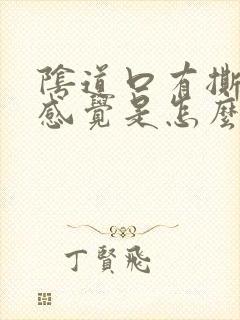 陰道口有撕
感覺是怎麼
丁賢飛